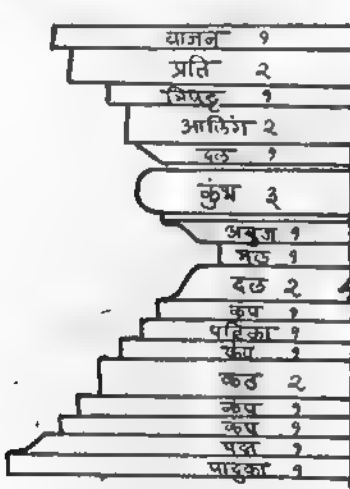 याजन १
प्रति २
त्रिपट्ट १
आलिंग २
दल १
कुंभ ३
अंबुज १
गल १
दल २
कंप १
पट्टिका १
कंप १
कंठ २
कंप १
कंप १
पद्म १
पादुका १